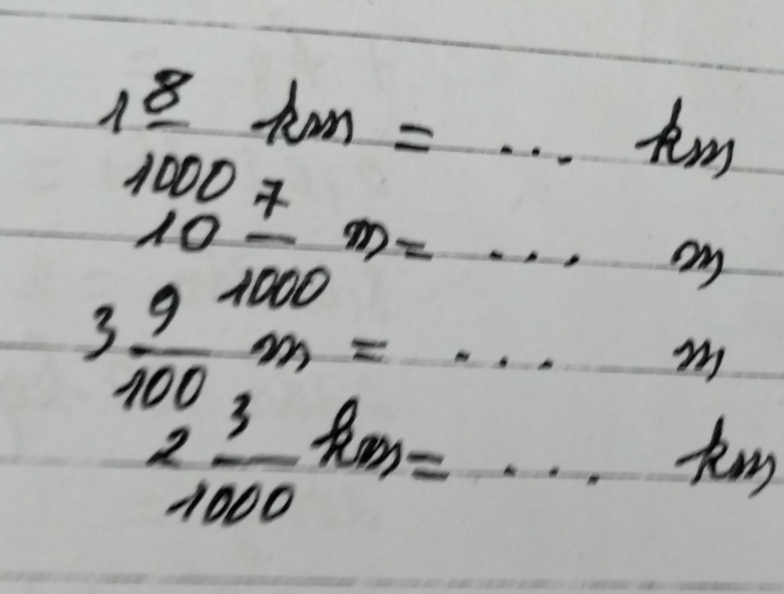 1 8/1000 km = ... km
10 7/1000 m = ... m
3 9/100 m = ... m
2 3/1000 km = ... km